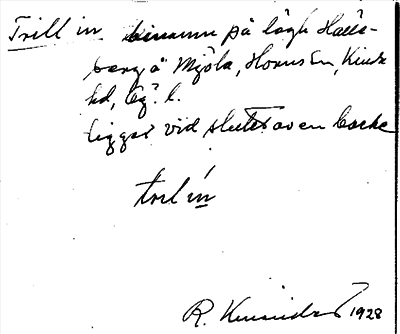 Trill in. binamn på lägh Halls-
berg å Mjöla, Horns sn, Kinds
hd, Ög. l.
ligger vid slutet av en backe
trilín
R. 1928